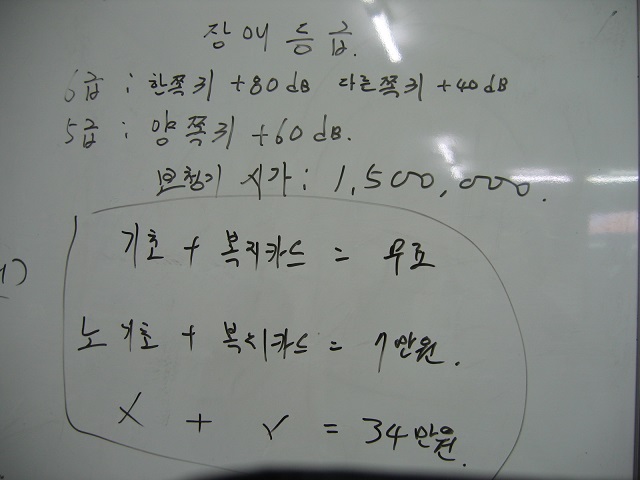 장애등급.
6급 : 한쪽귀 +80dB 다른쪽귀 +40dB
5급 : 양쪽귀 +60dB.
보청기 시가 : 1,500,000.
기초 + 복지카드 = 무료
노기초 + 복지카드 = 7만원.
X + √ = 34만원.